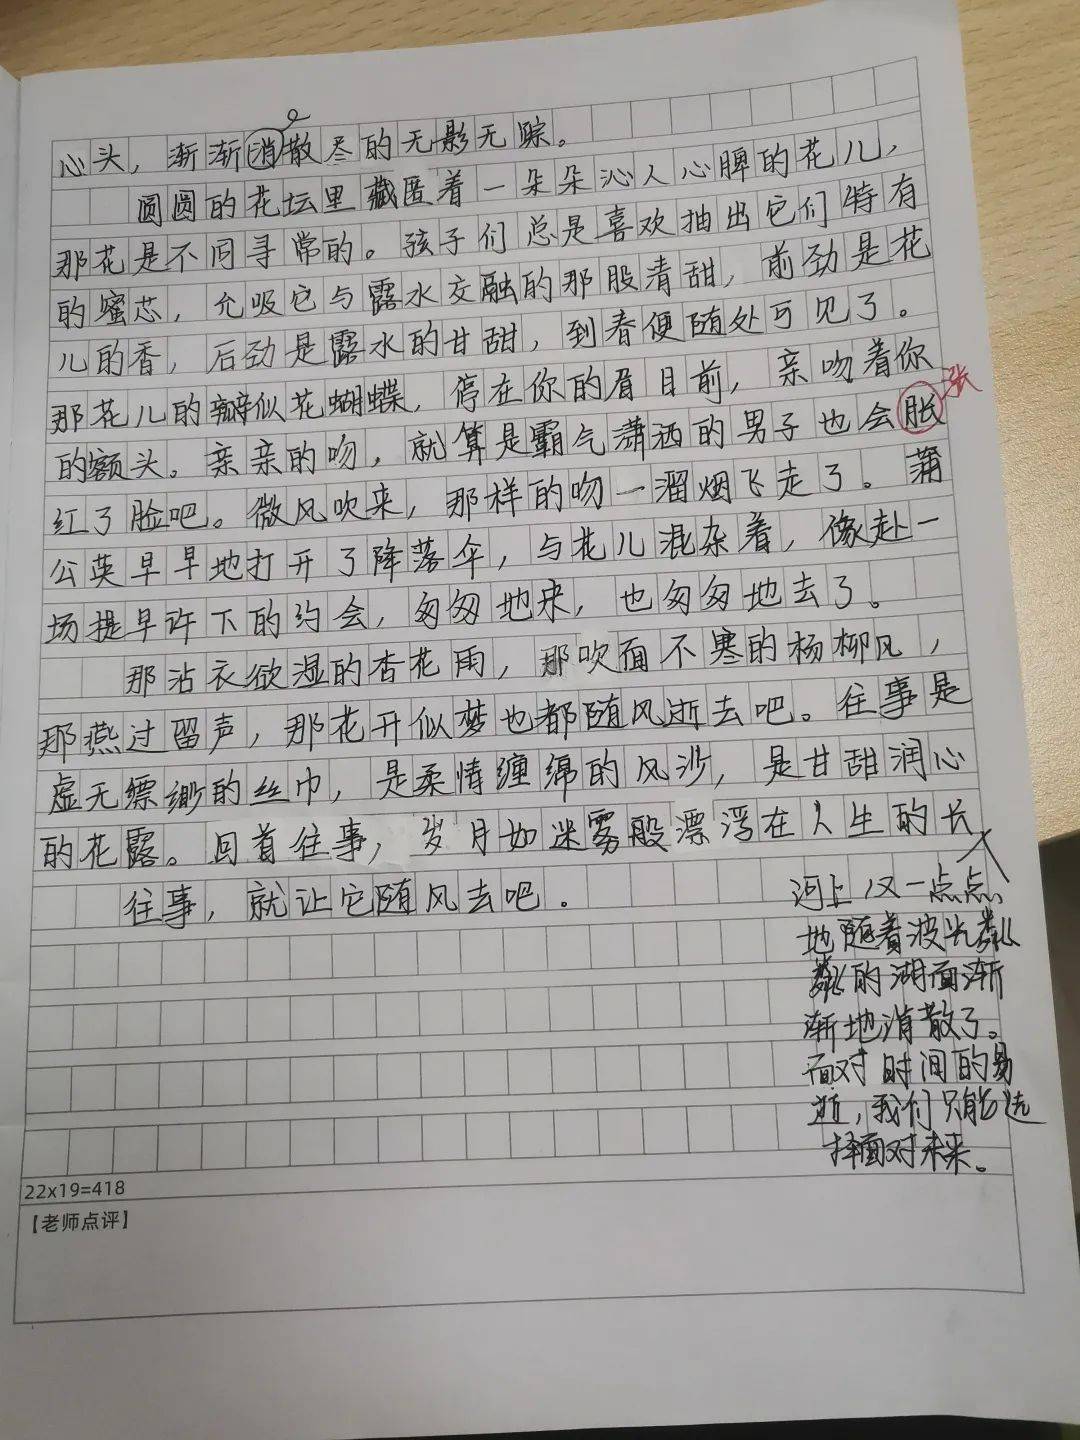 心头，渐渐消散尽的无影无踪。
圆圆的花坛里藏匿着一朵朵沁人心脾的花儿，
那花是不同寻常的。孩子们总是喜欢抽出它们特有
的蜜芯，允吸它与露水交融的那股清甜，前劲是花
儿的香，后劲是露水的甘甜，到春便随处可见了。
那花儿的瓣似花蝴蝶，停在你的眉目前，亲吻着你
的额头。亲亲的吻，就算是霸气潇洒的男子也会胀
涨
红了脸吧。微风吹来，那样的吻一溜烟飞走了。蒲
公英早早地打开了降落伞，与花儿混杂着，像赴一
场提早许下的约会，匆匆地来，也匆匆地去了。
那沾衣欲湿的杏花雨，那吹面不寒的杨柳风，
那燕过留声，那花开似梦也都随风逝去吧。往事是
虚无缥缈的丝巾，是柔情缠绵的风沙，是甘甜润心
的花露。回首往事，岁月如迷雾般漂浮在人生的长
河上又一点点
地随着波光粼
粼的湖面渐
渐地消散了。
面对时间的易
逝，我们只能选
择面对未来。
往事，就让它随风去吧。
22x19=418
【老师点评】